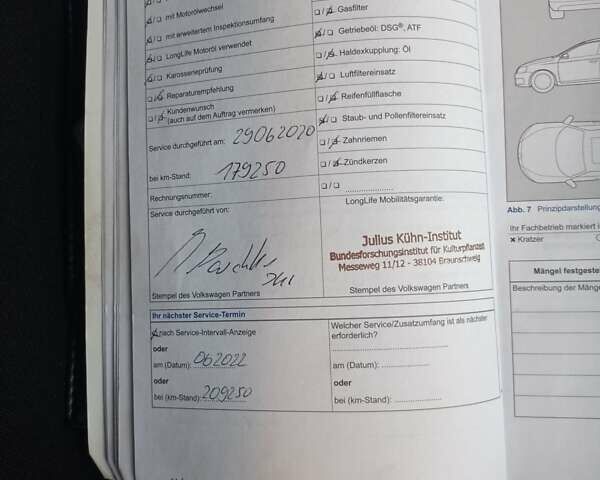 mit Motorölwechsel
mit erweitertem Inspektionsumfang
LongLife Motoröl verwendet
Karosserieprüfung
Reparaturempfehlung
Kundenwunsch
(auch auf dem Auftrag vermerken)
Service durchgeführt am: 29062020
bei km-Stand: 179250
Rechnungsnummer:
Service durchgeführt von:
Stempel des Volkswagen Partners
Gasfilter
Getriebeöl: DSG®, ATF
Haldexkupplung: Öl
Luftfiltereinsatz
Reifenfüllflasche
Staub- und Pollenfiltereinsatz
Zahnriemen
Zündkerzen
LongLife Mobilitätsgarantie:
Julius Kühn-Institut
Bundesforschungsinstitut für Kulturpflanzen
Messeweg 11/12 - 38104 Braunschweig
Stempel des Volkswagen Partners
Ihr nächster Service-Termin
nach Service-Intervall-Anzeige
oder
am (Datum): 062022
oder
bei (km-Stand): 209250
Welcher Service/Zusatzumfang ist als nächster
erforderlich?
am (Datum):
oder
bei (km-Stand):
Abb. 7 Prinzipdarstellung
Ihr Fachbetrieb markiert
× Kratzer
Mängel festgeste
Beschreibung der Mänge